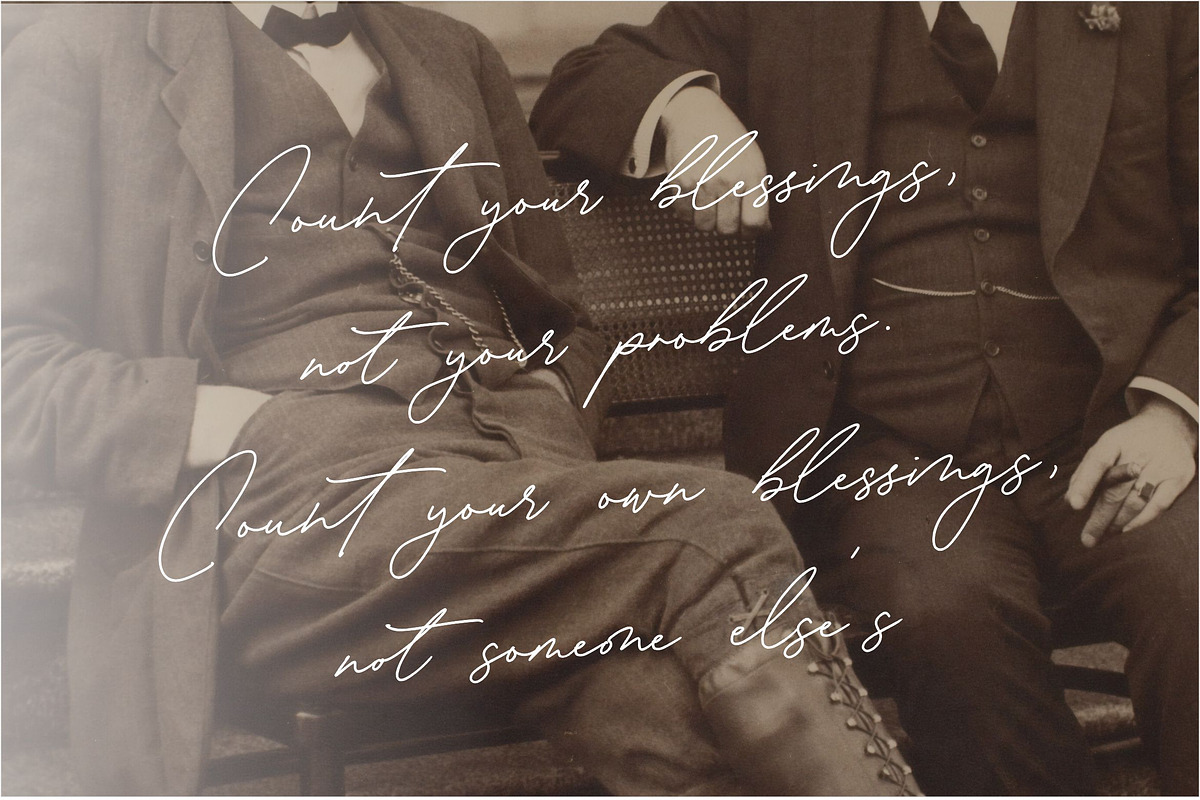 Count your blessings,
not your problems.
Count your own blessings,
not someone else's